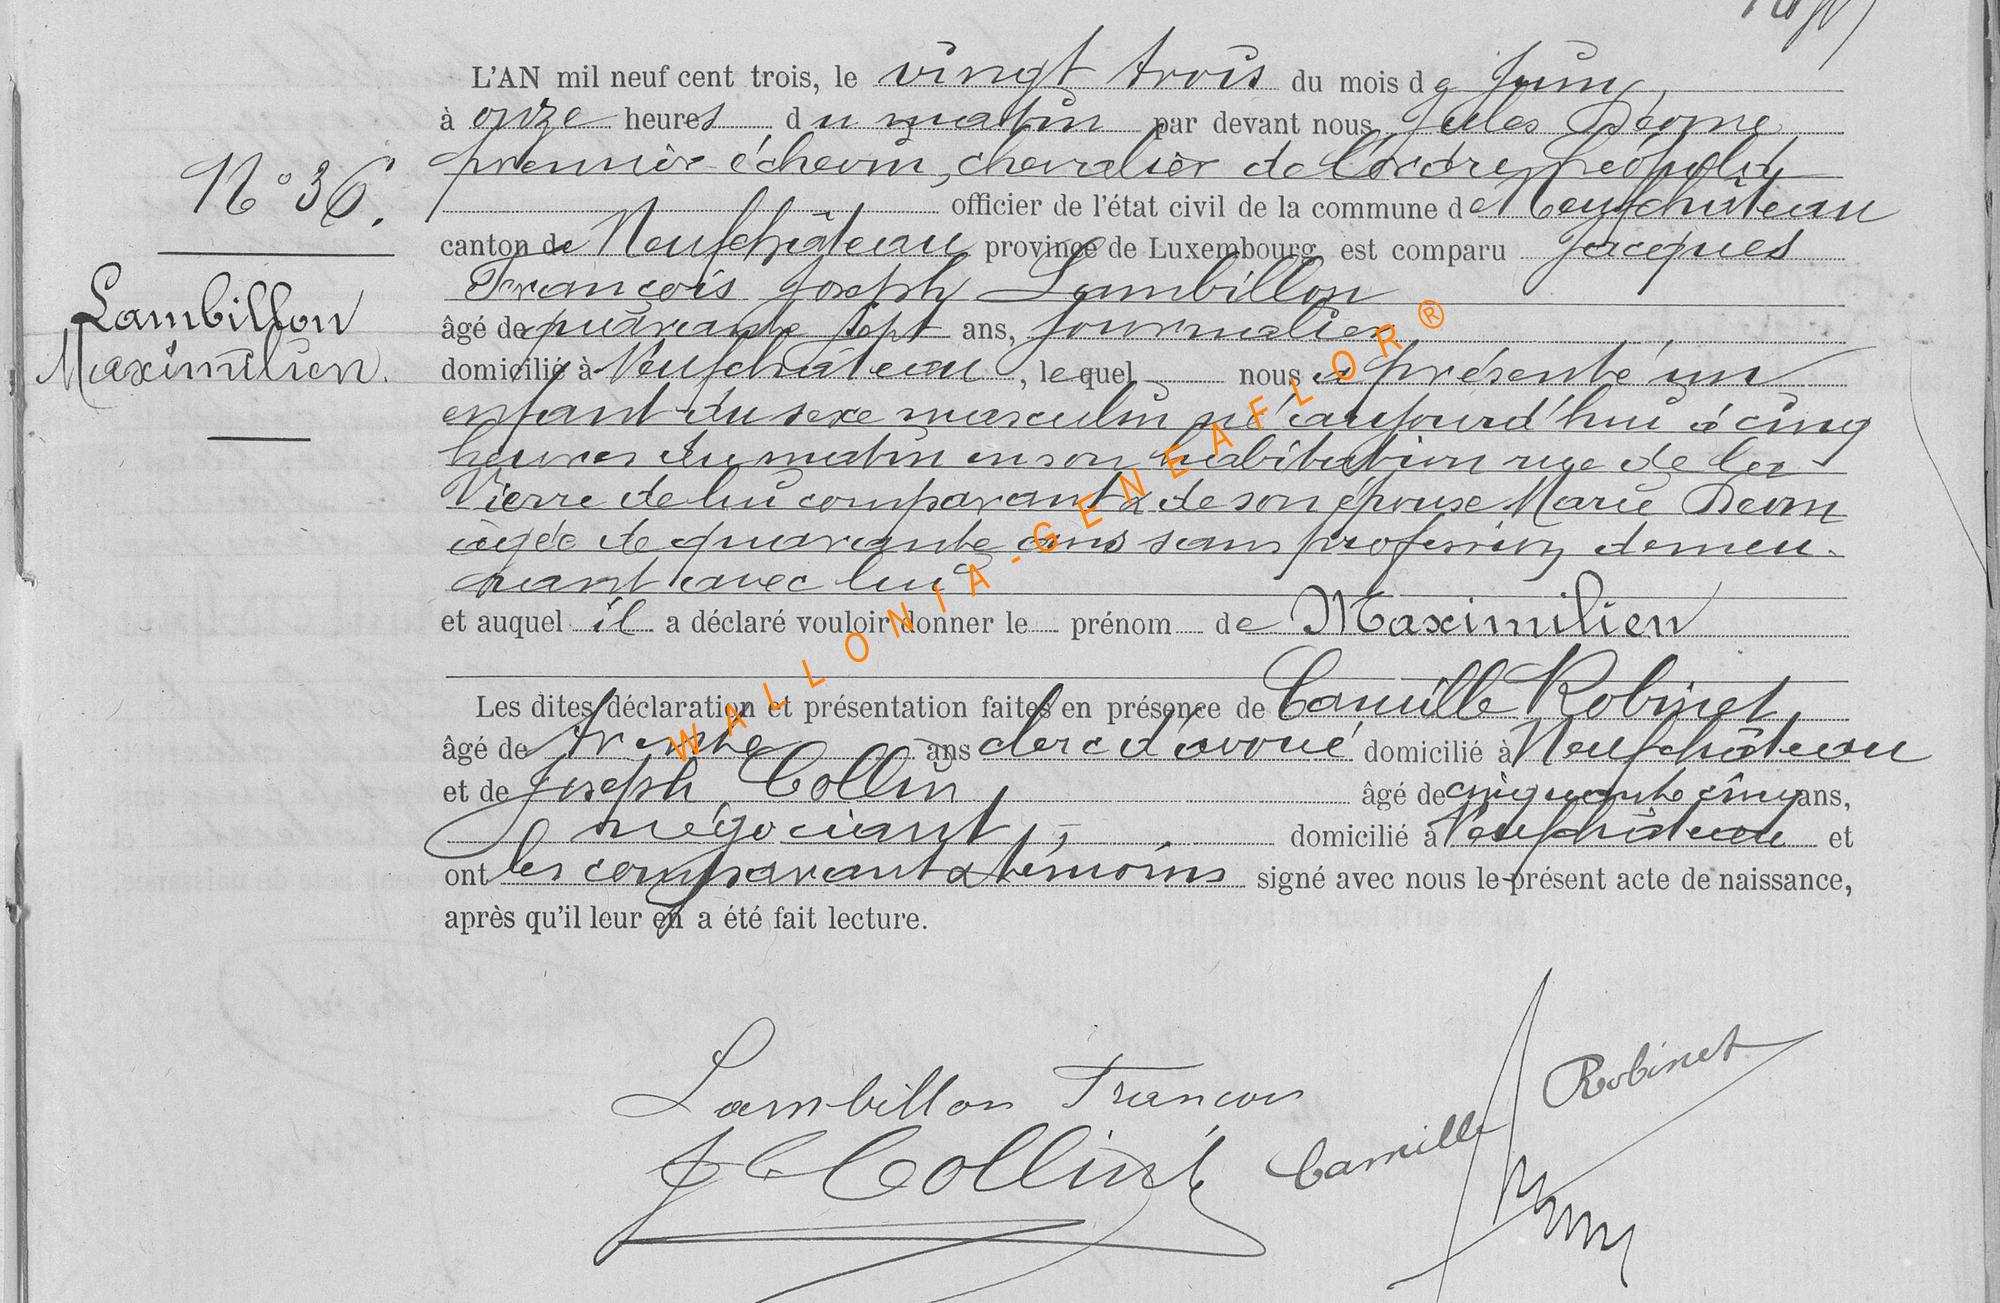 L'AN mil neuf cent trois, le vingt trois du mois de Juin
à onze heures du matin par devant nous Jules
premier échevin, chevalier de l'ordre Léopold,
N° 36.
officier de l'état civil de la commune de Neufchâteau
canton de Neufchâteau province de Luxembourg, est comparu Jacques
François Joseph Lambillon
Lambillon
âgé de quarante sept ans, journalier
Maximilien.
domicilié à Neufchâteau, lequel nous a présenté un
enfant du sexe masculin né aujourd'hui à cinq
heures du matin en son habitation rue de la
Vierre de lui comparant & de son épouse Marie Deom
agée de quarante ans sans profession demeu-
rant avec lui
et auquel il a déclaré vouloir donner le prénom de Maximilien
Les dites déclaration et présentation faites en présence de Camille Robinet
âgé de trente ans clerc d'avoué domicilié à Neufchâteau
et de Joseph Collin âgé de cinquante cinq ans,
négociant, domicilié à Neufchâteau et
ont les comparant & témoins signé avec nous le présent acte de naissance,
après qu'il leur en a été fait lecture.
WALLONIA-GENEAFLOR®
Lambillon François
J Collin
Camille Robinet